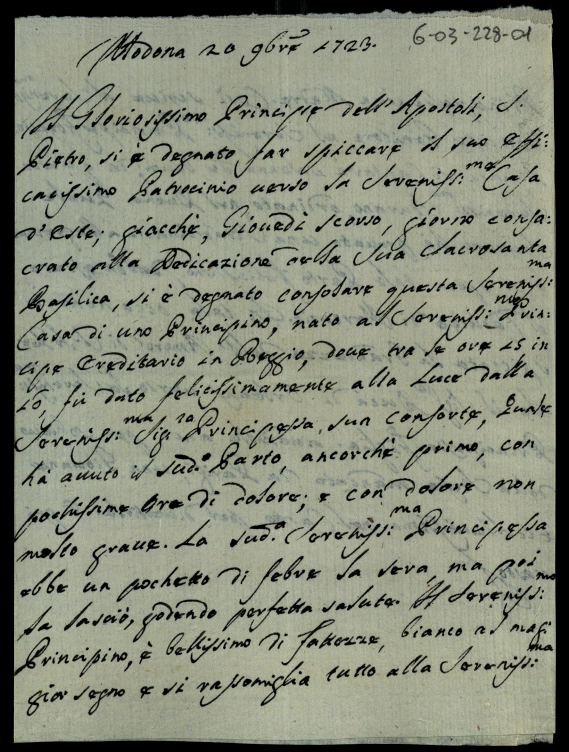 6-03-228-01
Modona 20 9bre 1723.
Il Gloriosissimo Principe dell' Apostoli, S.
Pietro, si è degnato far spiccare il suo effi:
cacissimo Patrocinio verso la Sereniss:ma Casa
d'Este; giacchè, Giovedì scorso, giorno consa:
crato alla Dedicazione della Sua Sacrosanta
Basilica, si è degnato consolare questa Sereniss:ma
Casa di uno Principino, nato al Sereniss:mo Prin:
cipe Ereditario in Reggio, dove tra le ore 15 in
16, fù dato felicissimamente alla Luce dalla
Sereniss:ma Sig.ra Principessa, sua consorte, quale
hà avuto il sud.o Parto, ancorchè primo, con
pochissime Ore di dolore; e con dolore non
molto grave. La sud.a Sereniss:ma Principessa
ebbe un pochetto di febre la sera, ma poi
la lasciò, godendo perfetta salute. Il Sereniss:mo
Principino, è bellissimo di fattezze, bianco al mag:
gior segno e si rassomiglia tutto alla Sereniss:ma